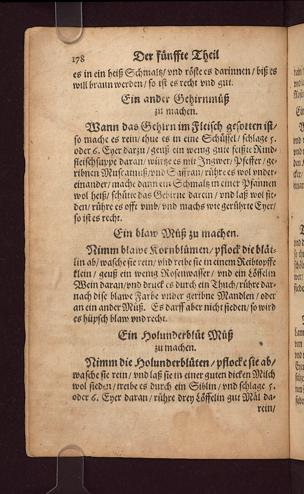 178 Der fünffte Theil
es in ein heiß Schmaltz/ vnd röste es darinnen/ biß es
will braun werden/ so ist es recht vnd gut.
Ein ander Gehirnmüß
zu machen.
Wann das Gehirn im Fleisch gesotten ist/
so mache es rein/ thue es in eine Schüssel/ schlage 5.
oder 6. Eyer daran/ geuß ein wenig gute feißte Rind-
fleischsuppe daran/ würtze es mit Ingwer/ Pfeffer/ ge-
ribnen Muscatnuß/ vnd Saffran/ rühre es wol vnder-
einander/ mache dann ein Schmaltz in einer Pfannen
wol heiß/ schütte das Gehirne darein/ vnd laß wol sie-
den/ rühre es offt vmb/ vnd machs wie gerührte Eyer/
so ist es recht.
Ein blaw Müß zu machen.
Nimm blawe Kornblumen/ pflock die blät-
lin ab/ wasche sie rein/ vnd reibe sie in einem Reibtopffe
klein/ geuß ein wenig Rosenwasser/ vnd ein Löffelin
Wein daran/ vnd druck es durch ein Thuch/ rühre dar-
nach dise blawe Farbe vnder geribne Mandlen/ oder
an ein ander Müß. Es darff aber nicht sieden/ so wird
es hüpsch blaw vnd recht.
Ein Holunderblüt Müß
zu machen.
Nimm die Holunderblüten/ pflocke sie ab/
wasche sie rein/ vnd laß sie in einer guten dicken Milch
wol sieden/ treibe es durch ein Siblin/ vnd schlage 5.
oder 6. Eyer daran/ rühre drey Löffelin gut Mäl da-
rein/